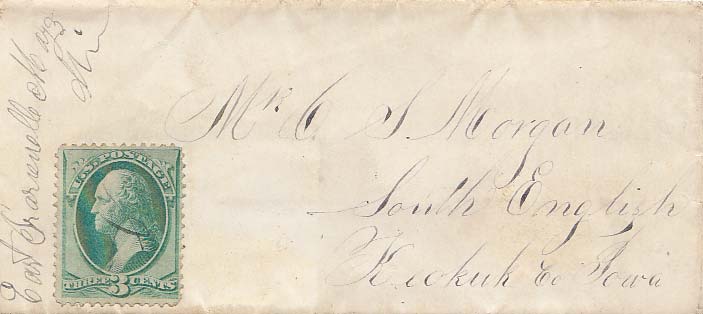 East May 23
Mr. C S Morgan
South English
Keokuk Co Iowa
U.S. POSTAGE
THREE 3 CENTS